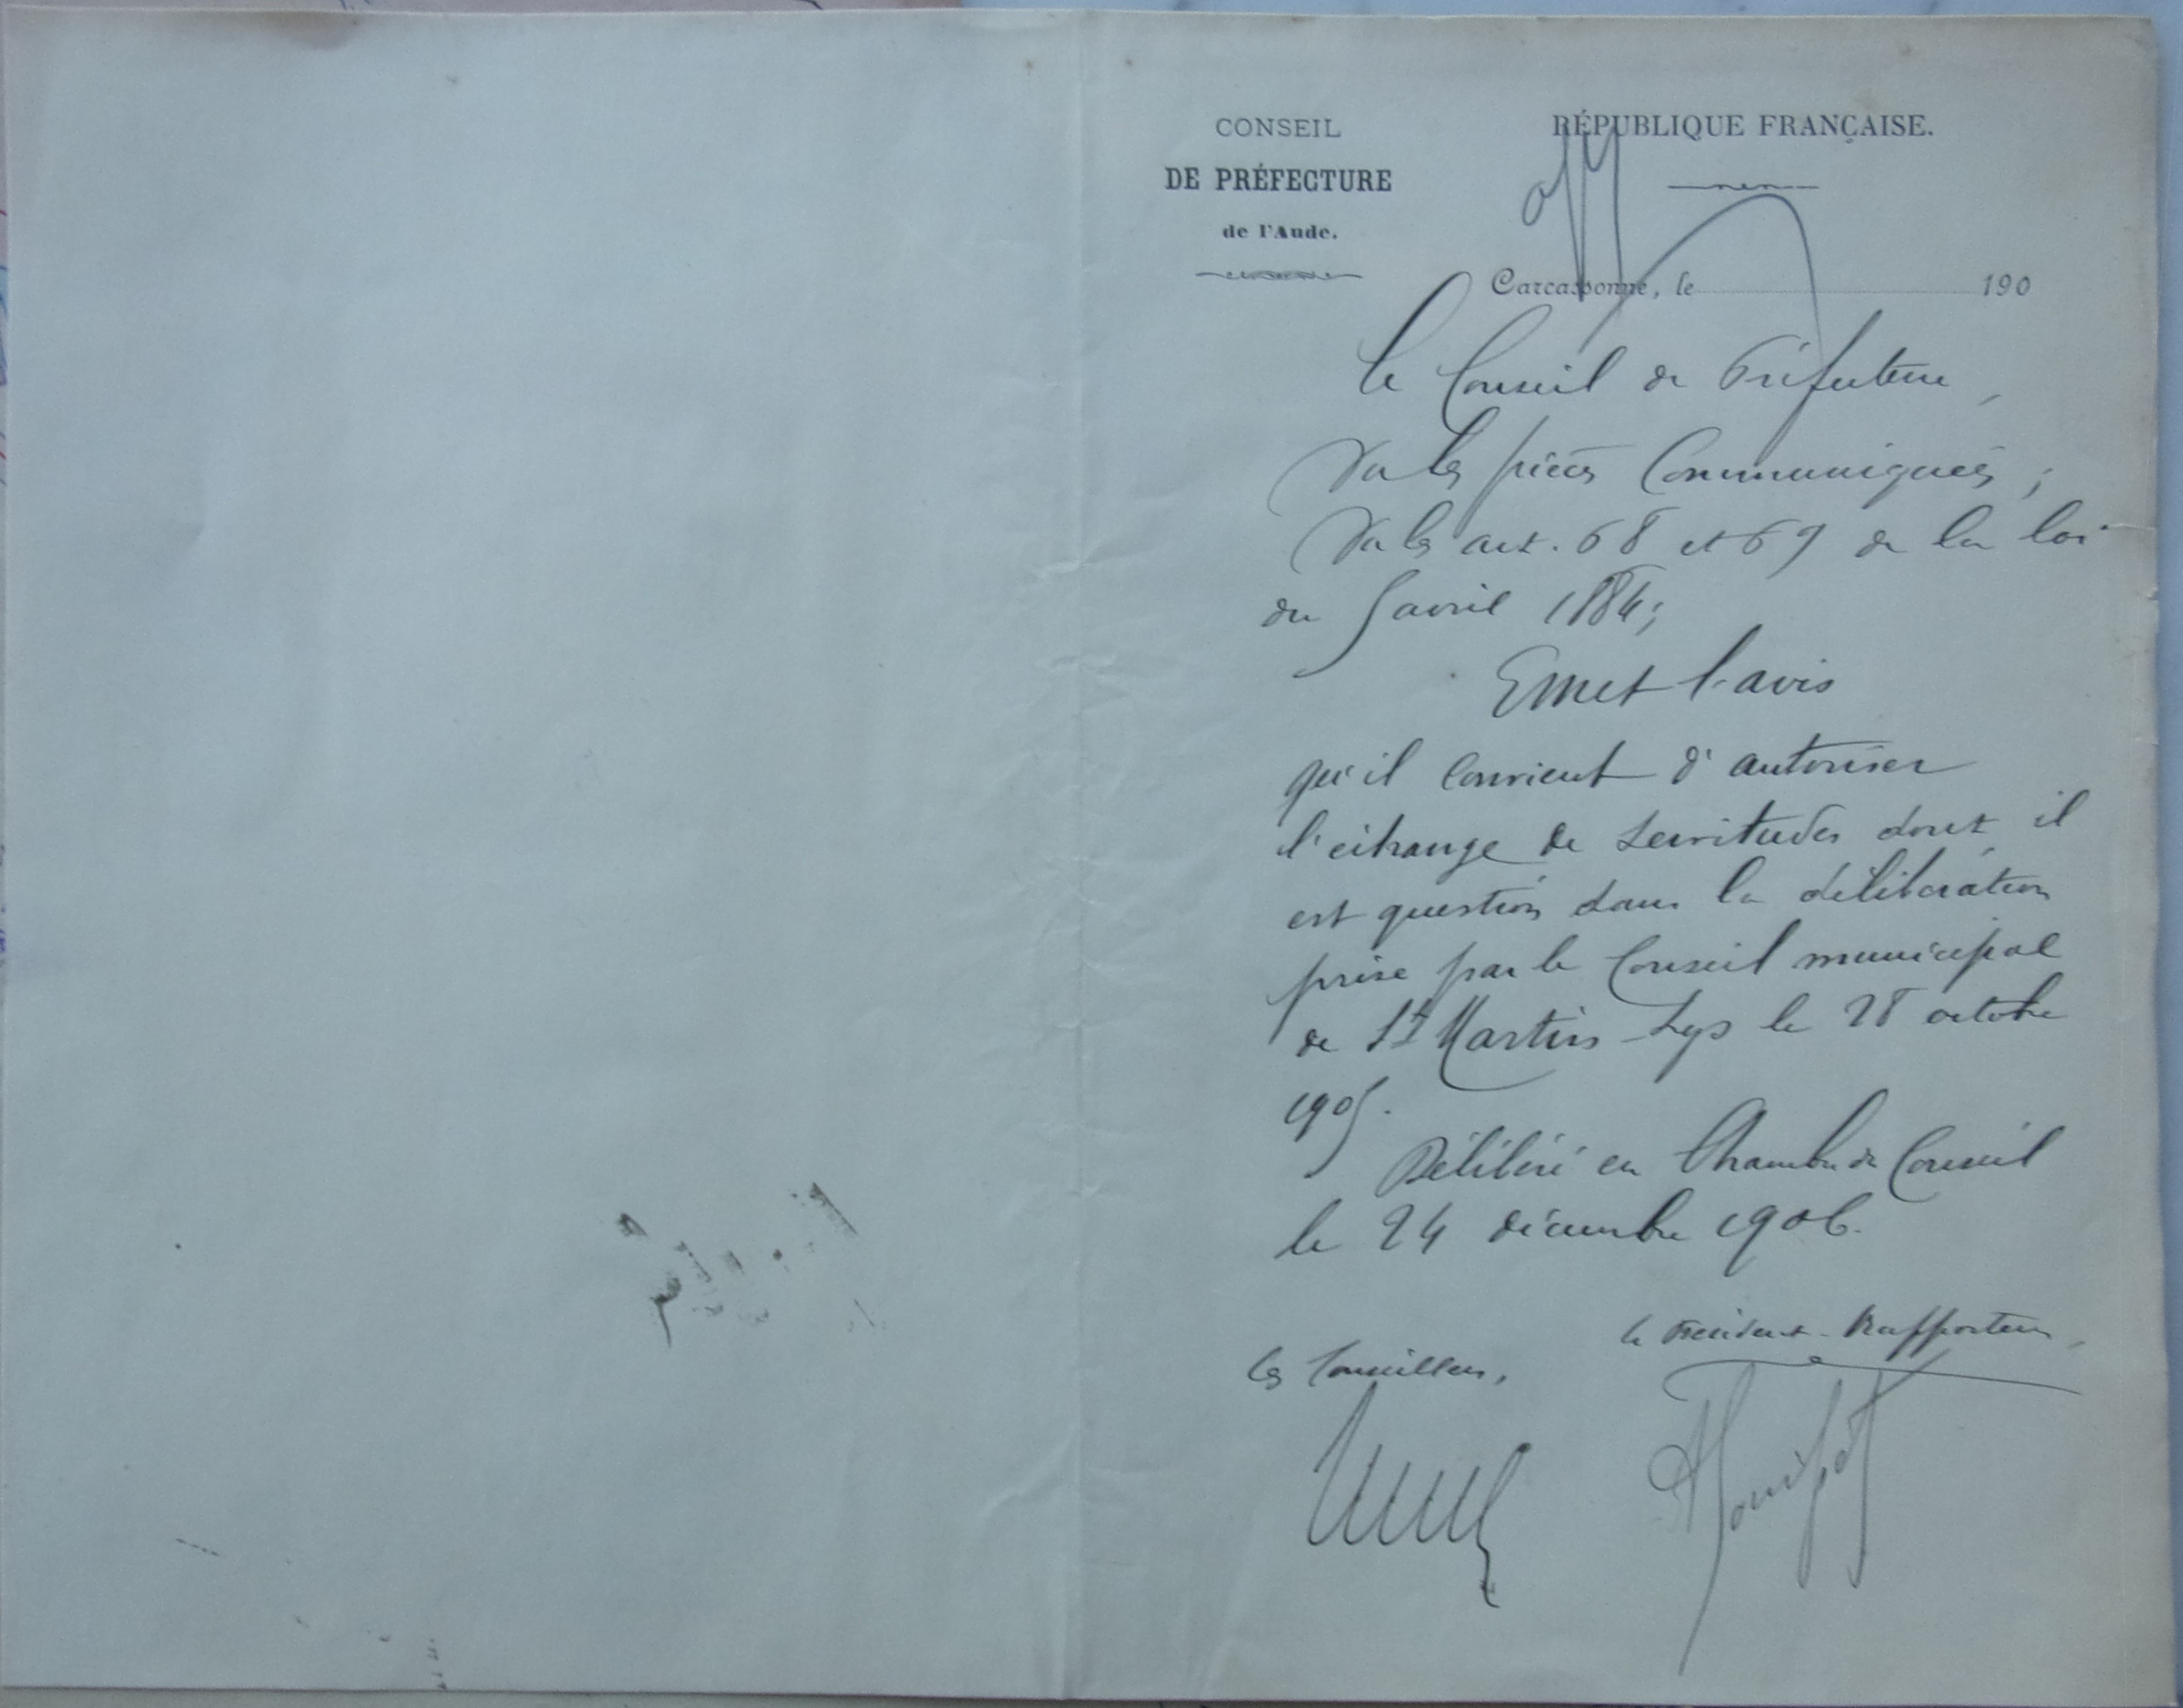 CONSEIL
DE PRÉFECTURE
de l'Aude.
RÉPUBLIQUE FRANÇAISE.
Carcassonne, le 190
Le Conseil de Préfecture,
Vu les pièces communiquées ;
Vu les art. 68 et 69 de la loi
du 5 avril 1884;
Emet l'avis
qu'il convient d'autoriser
l'échange de servitudes dont il
est question dans la délibération
prise par le Conseil municipal
de St Martin-Lys le 28 octobre
1905.
Délibéré en Chambre du Conseil
le 24 décembre 1906.
Le Président-Rapporteur,
Les Conseillers,